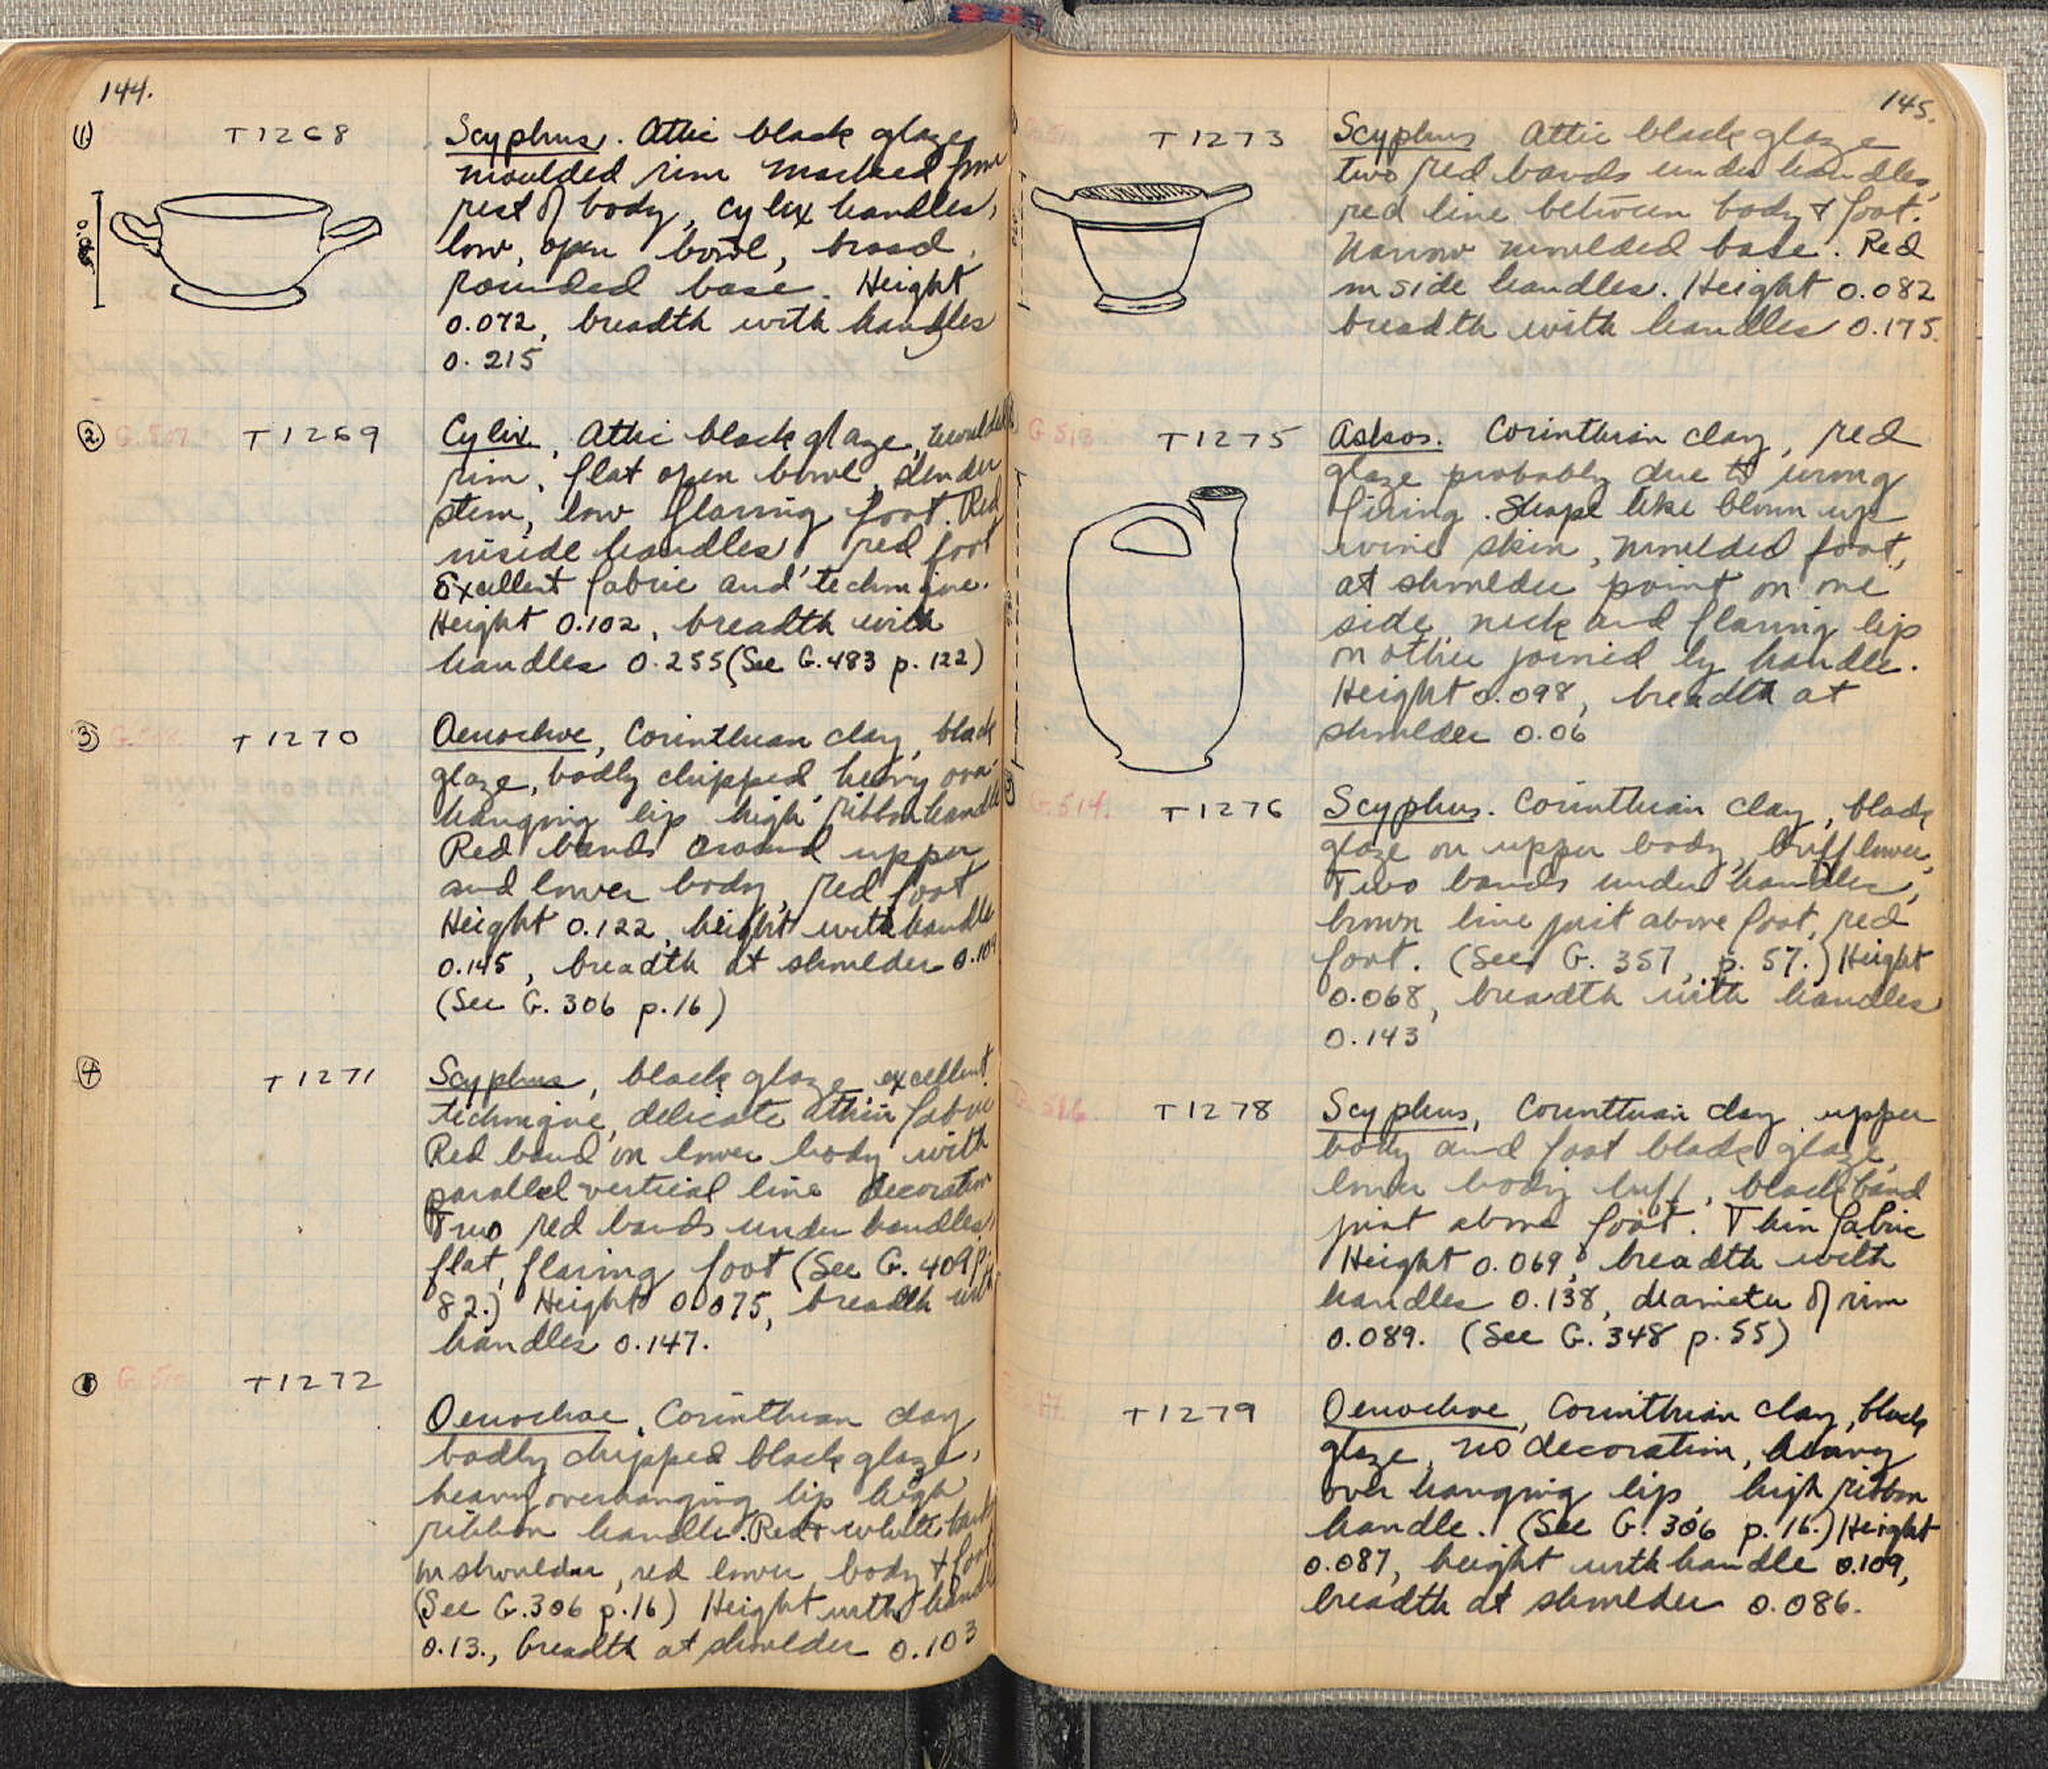 144.
(1)
T1268
Scyphus. Attic black glaze,
moulded rim marked from
rest of body, cylix handles,
low, open bowl, broad,
rounded base. Height
0.072, breadth with handles
0.215
(2)
G.507
T1269
Cylix, Attic black glaze, moulded
rim, flat open bowl, slender
stem, low flaring foot. Red
inside handles, red foot
Excellent fabric and technique.
Height 0.102, breadth with
handles 0.255 (See G.483 p.122)
(3)
T1270
Oenochoe, Corinthian clay, black
glaze, badly chipped, heavy over
hanging lip high ribbon handle
Red bands around upper
and lower body, red foot
Height 0.122, height with handle
0.145, breadth at shoulder 0.109
(See G. 306 p.16)
(4)
T1271
Scyphus, black glaze, excellent
technique, delicate thin fabric
Red band on lower body with
parallel vertical line decoration
Two red bands under handles,
flat, flaring foot (See G. 409 p.
82.) Height 0.075, breadth with
handles 0.147.
T1272
Oenochoe, Corinthian clay
badly chipped black glaze,
heavy overhanging lip high
ribbon handle. Red & white
on shoulder, red lower body & foot
(See G.306 p.16) Height with handle
0.13., breadth at shoulder 0.103
145.
T1273
Scyphus Attic black glaze
two red bands under handles,
red line between body & foot.
Narrow moulded base. Red
inside handles. Height 0.082
breadth with handles 0.175.
G 513
T1275
Askos. Corinthian clay, red
glaze probably due to wrong
firing. Shape like blown up
wine skin, moulded foot,
at shoulder point on one
side, neck and flaring lip
on other joined by handle.
Height 0.098, breadth at
shoulder 0.06
G.514.
T1276
Scyphus. Corinthian clay, black
glaze on upper body, buff lower,
Two bands under handles,
brown line just above foot, red
foot. (See G. 357, p. 57.) Height
0.068, breadth with handles
0.143
G.516.
T1278
Scyphus, Corinthian clay upper
body and foot black glaze,
lower body buff, black band
just above foot. Thin fabric
Height 0.069, breadth with
handles 0.138, diameter of rim
0.089. (See G. 348 p.55)
T1279
Oenochoe, Corinthian clay, black
glaze, no decoration, heavy
over hanging lip, high ribbon
handle. (See G. 306 p.16.) Height
0.087, height with handle 0.109,
breadth at shoulder 0.086.